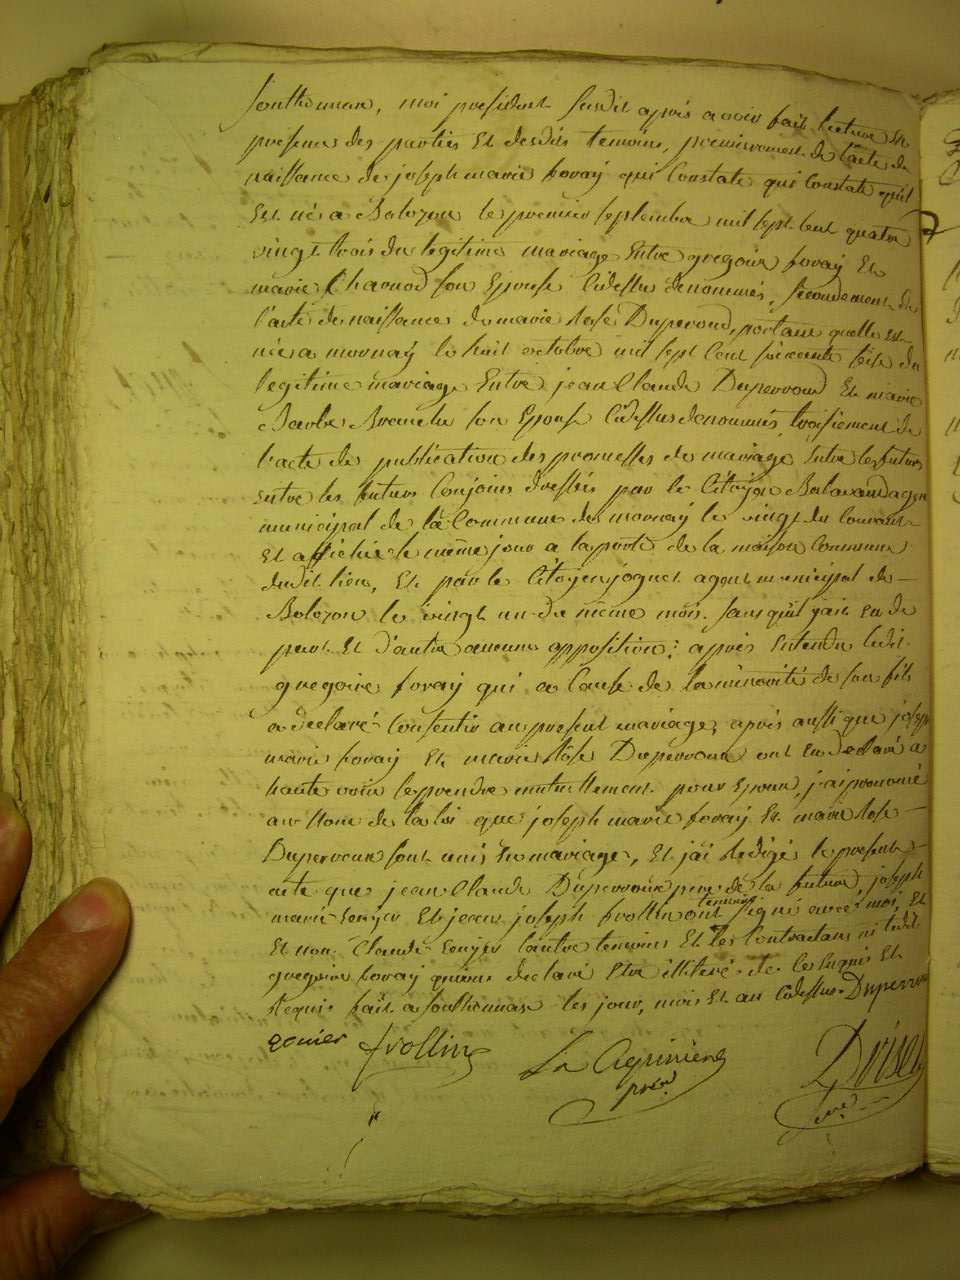 Sonthonnax, moi president susdit après avoir fait lecture en
presence des parties et desdits temoins, premierement de l'acte de
naissance de joseph marie fovay qui Constate qui constate quil
est né a Bolozon le premier septembre mil sept cent quatre
vingt trois du legitime mariage entre gregoire fovay et
marie Charnod son Epouse Cidessus denommés, secondement de
l'acte de naissance de marie Rose Duperroud, portant quelle est
née a mornay le huit octobre mil sept cent soixante seize du
legitime mariage Entre jean Claude Duperroud et marie
Barbe son Epouse Cidessus denommés, troisiement de
l'acte de publication des promesses de mariage Entre les futurs
entre les futurs Conjoins dressés par le Citoyen agent
municipal de la Commune de mornay le vingt du Courant
et affichée le même jour a la porte de la maison Commune
dudit lieu, et par le Citoyen joguet agent municipal de
Bolozon le vingt un du même mois. sans quil y ait eu de
part et d'autre aucune opposition; après Entendu ledit
gregoire fovay qui a Cause de la minorité de son fils
a declaré Consentir au present mariage, après aussi que joseph
marie fovay et marie Rose Duperroux ont eu declaré a
haute voix se prendre mutuellement pour Epoux, j'ai prononcé
au Nom de la loi que joseph marie fovay et marie Rose
Duperroux sont unis en mariage, et j'ai Redigé le present
acte que jean Claude Duperroux pere de la future, joseph
marie et jean joseph frollin temoins ont signé avec moi, et
et non Claude l'autre temoins et les Contractans ni ledit
gregoire fovay qui ont declaré Etre illiteré de ce Enquis et
Requis fait a Sonthonnax les jour, mois et an Cidessus. Duperroux
gonier frollin La
presd